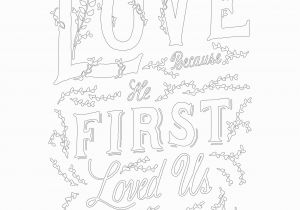 LOVE
Because
He
FIRST
Loved Us